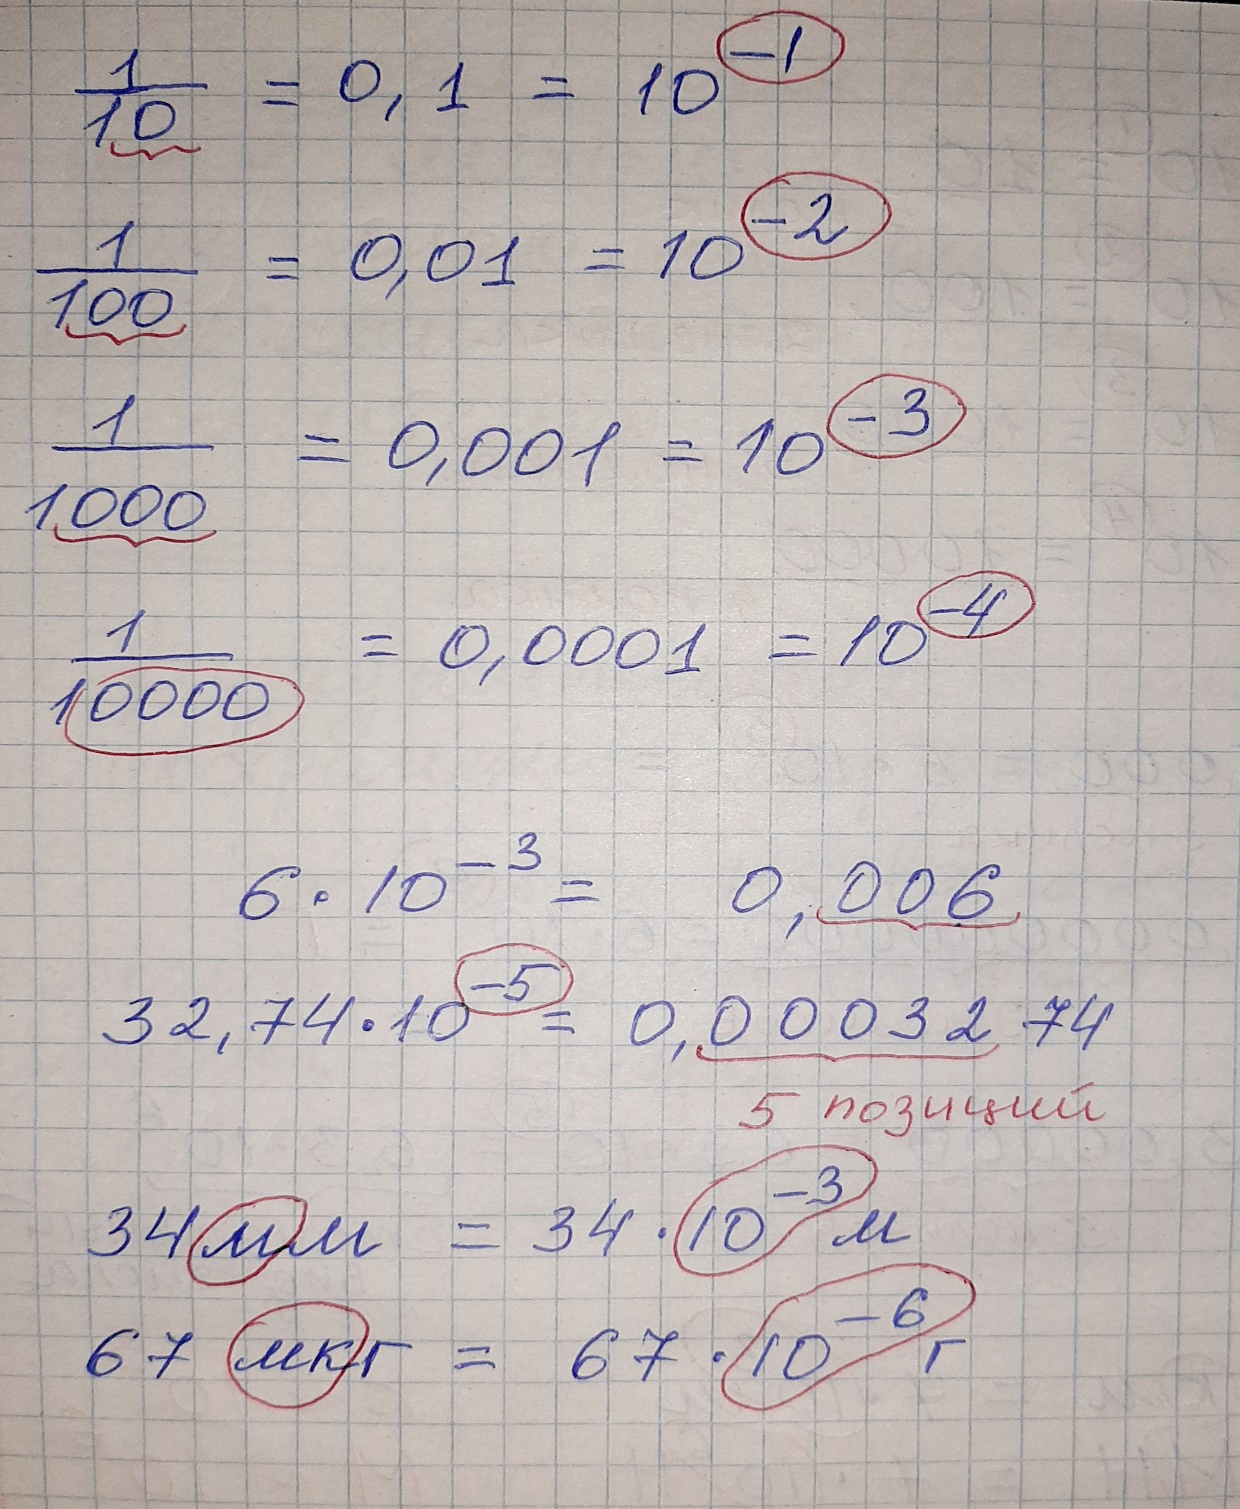 1/10 = 0,1 = 10⁻¹
1/100 = 0,01 = 10⁻²
1/1000 = 0,001 = 10⁻³
1/10000 = 0,0001 = 10⁻⁴
6 · 10⁻³ = 0,006
32,74 · 10⁻⁵ = 0,0003274
5 позиций
34 мм = 34 · 10⁻³ м
67 мкг = 67 · 10⁻⁶ г